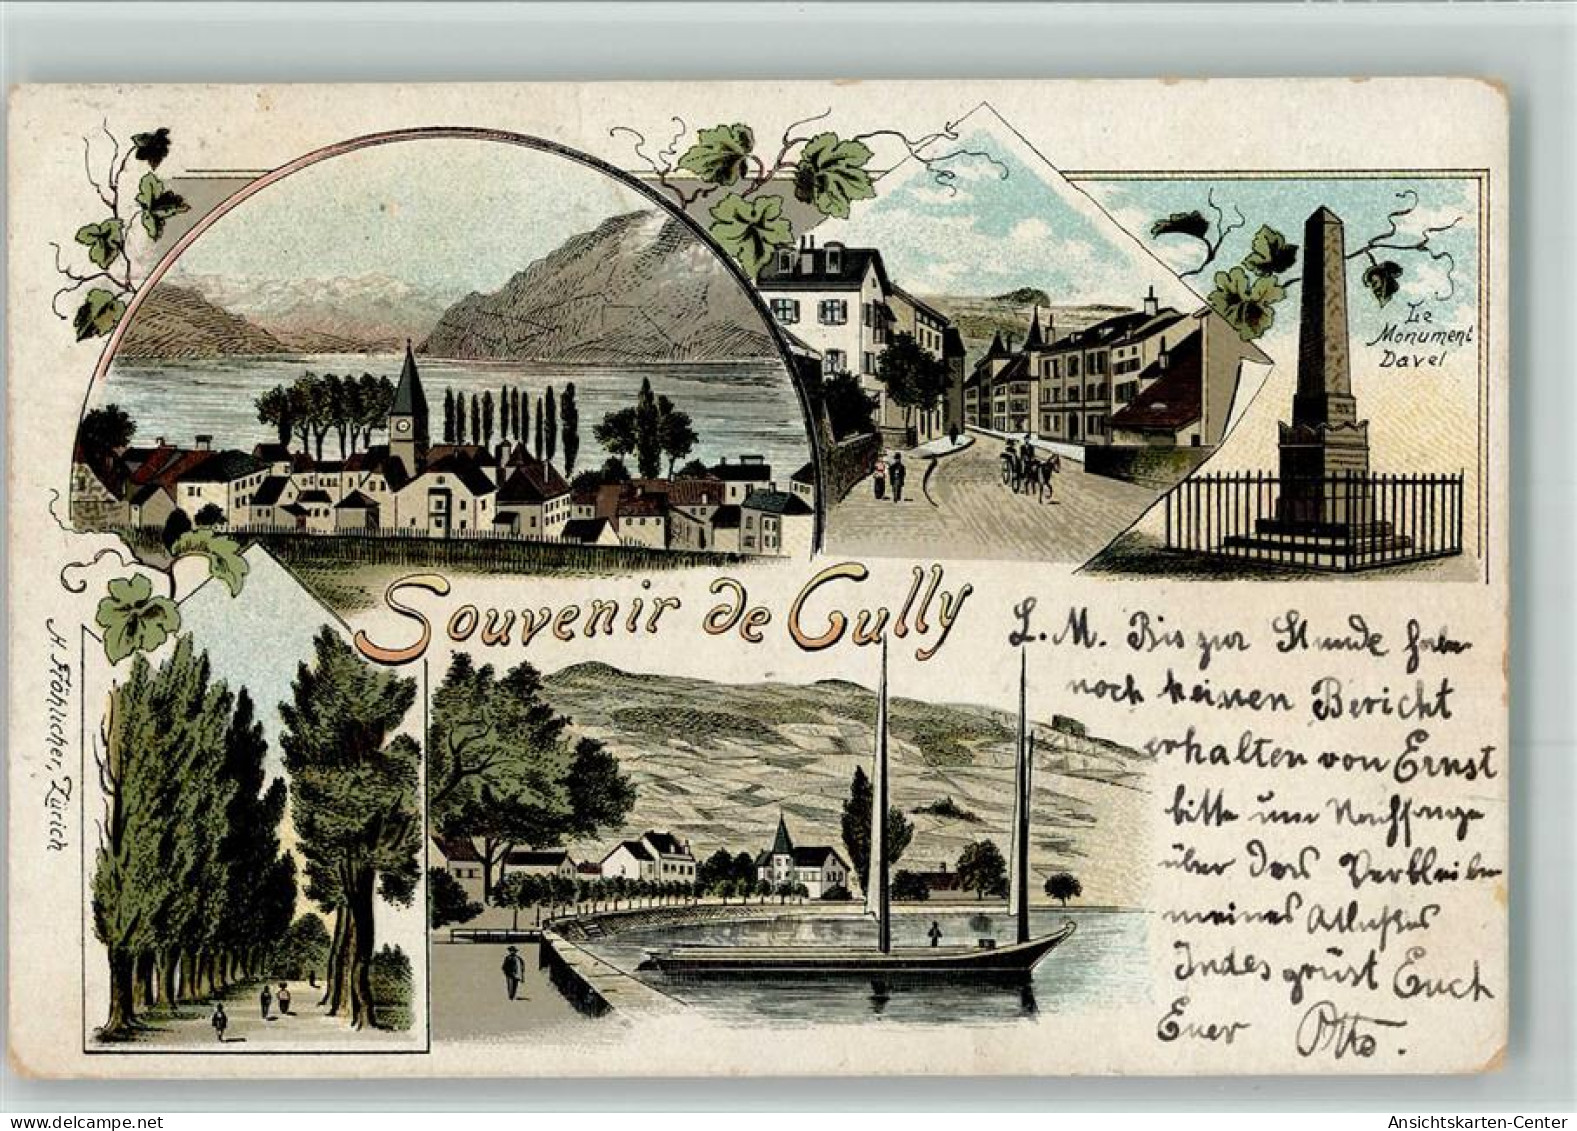 Le
Monument
Davel
Souvenir de Cully
H. Fröhlicher, Zürich
L. M. Bis zur Stunde habe
noch keinen Bericht
erhalten von Ernst
bitte um Nachfrage
über das Verbleiben
meines
Indes grüst Euch
Euer Otto.
delcampe.net
Ansichtskarten-Center